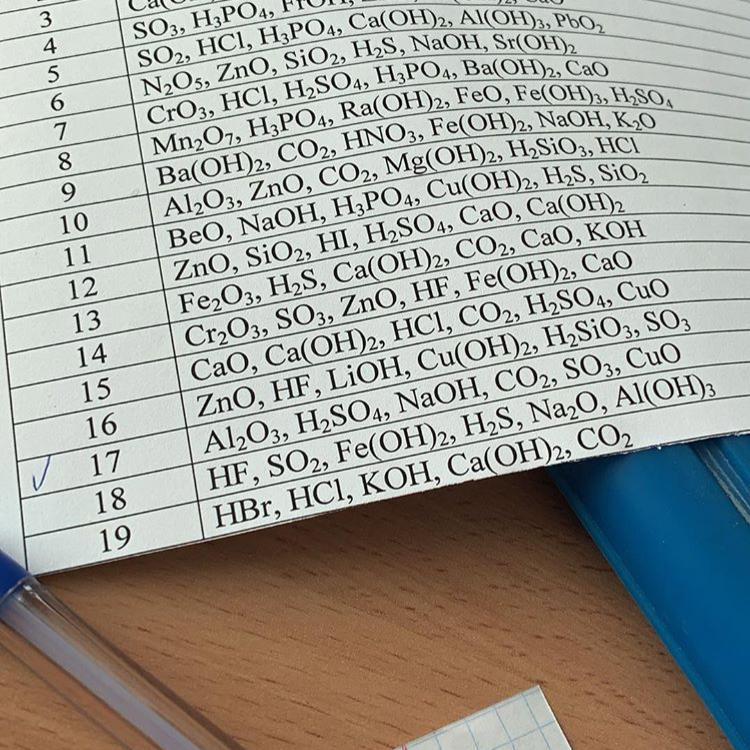 3
4 SO₃, H₃PO₄,
5 SO₂, HCl, H₃PO₄, Ca(OH)₂, Al(OH)₃, PbO₂
6 N₂O₅, ZnO, SiO₂, H₂S, NaOH, Sr(OH)₂
7 CrO₃, HCl, H₂SO₄, H₃PO₄, Ba(OH)₂, CaO
8 Mn₂O₇, H₃PO₄, Ra(OH)₂, FeO, Fe(OH)₃, H₂SO₄
9 Ba(OH)₂, CO₂, HNO₃, Fe(OH)₂, NaOH, K₂O
10 Al₂O₃, ZnO, CO₂, Mg(OH)₂, H₂SiO₃, HCl
11 BeO, NaOH, H₃PO₄, Cu(OH)₂, H₂S, SiO₂
12 ZnO, SiO₂, HI, H₂SO₄, CaO, Ca(OH)₂
13 Fe₂O₃, H₂S, Ca(OH)₂, CO₂, CaO, KOH
14 Cr₂O₃, SO₃, ZnO, HF, Fe(OH)₂, CaO
15 CaO, Ca(OH)₂, HCl, CO₂, H₂SO₄, CuO
16 ZnO, HF, LiOH, Cu(OH)₂, H₂SiO₃, SO₃
17 Al₂O₃, H₂SO₄, NaOH, CO₂, SO₃, CuO
18 HF, SO₂, Fe(OH)₂, H₂S, Na₂O, Al(OH)₃
19 HBr, HCl, KOH, Ca(OH)₂, CO₂